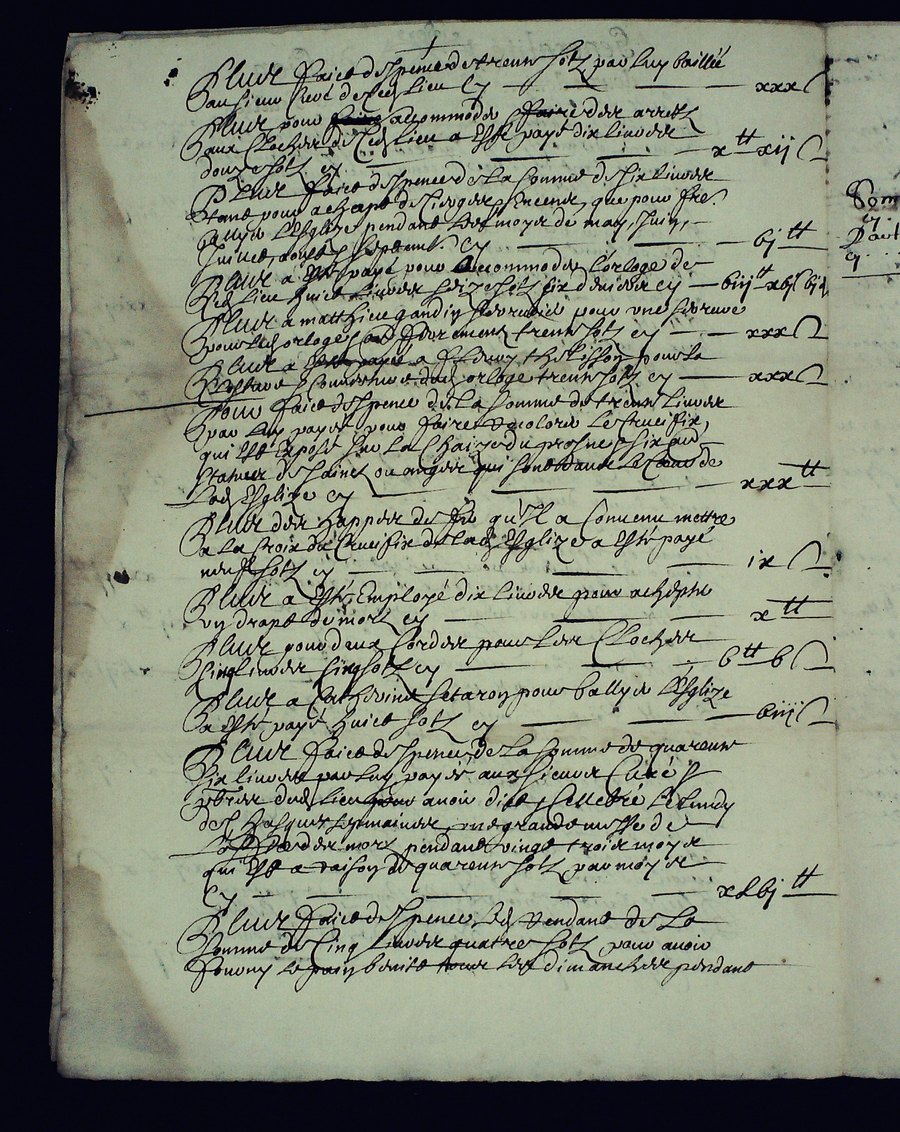 Plus faict despence de trente solz par luy baillée
au sieur Curé de Ced lieu Cy xxx s
Plus pour accommoder faire des arretz
aux Cloches de Ced lieu a esté payé dix livres
douze solz cy x tt xij s
Plus faict despence de la somme de six livres
tant pour achapt de cierges, encens, que pour
l'Esglize pendant les moys de may, Juin,
Juillet, aoust, septemb. Cy bj tt
Plus a esté payé pour accommoder l'orloge de
Ced lieu huict livres seize solz six deniers cy biij tt xbj s bj d
Plus a matthieu gandin serrurier pour une serrure
pour led orloge et ferrement trente solz cy xxx s
Plus a esté payée a pour la
Couverture dud orloge trente solz cy xxx s
Pour faict despence de la somme de trente livres
par luy payée pour faire recolorer le Crucifix,
qui est exposé sur la Chaize du prosne, six aus
statues de saincts ou anges qui sont dans le
Lad Esglize cy xxx tt
Plus des happes de fer qu'il a Convenu mettre
a la Croix du Crucifix de lad Esglize a esté payé
neuf solz cy ix s
Plus a esté Employé dix livres pour achepter
un drapt de mort cy x tt
Plus pour deux Cordes pour les Cloches
Cinq livres Cinq solz cy b tt b s
Plus a Catherine Setaron pour ballyer l'Esglize
a esté payé huict solz cy biij s
Plus faict despence de la somme de quarente
six livres par luy payée aux sieurs Curé &
pbres dud lieu pour avoir dict & Cellebré le lundy
des Chasques sepmaines, une grande messe de
des mors pendant vingt trois moys
qui est a raison de quarente solz par moys
Cy xlbj tt
Plus faict despence led Rendant de la
somme de Cinq livres quatre solz pour avoir
fourny le pain benite tous les dimanches pendant